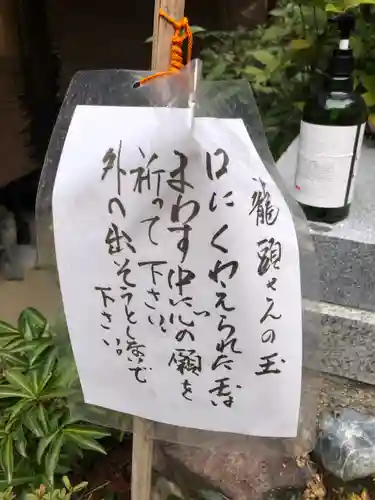 龍頭さんの玉
口にくわえられた玉は
まわす中に心の願を
祈って下さい。
外へ出そうとしないで
下さい。